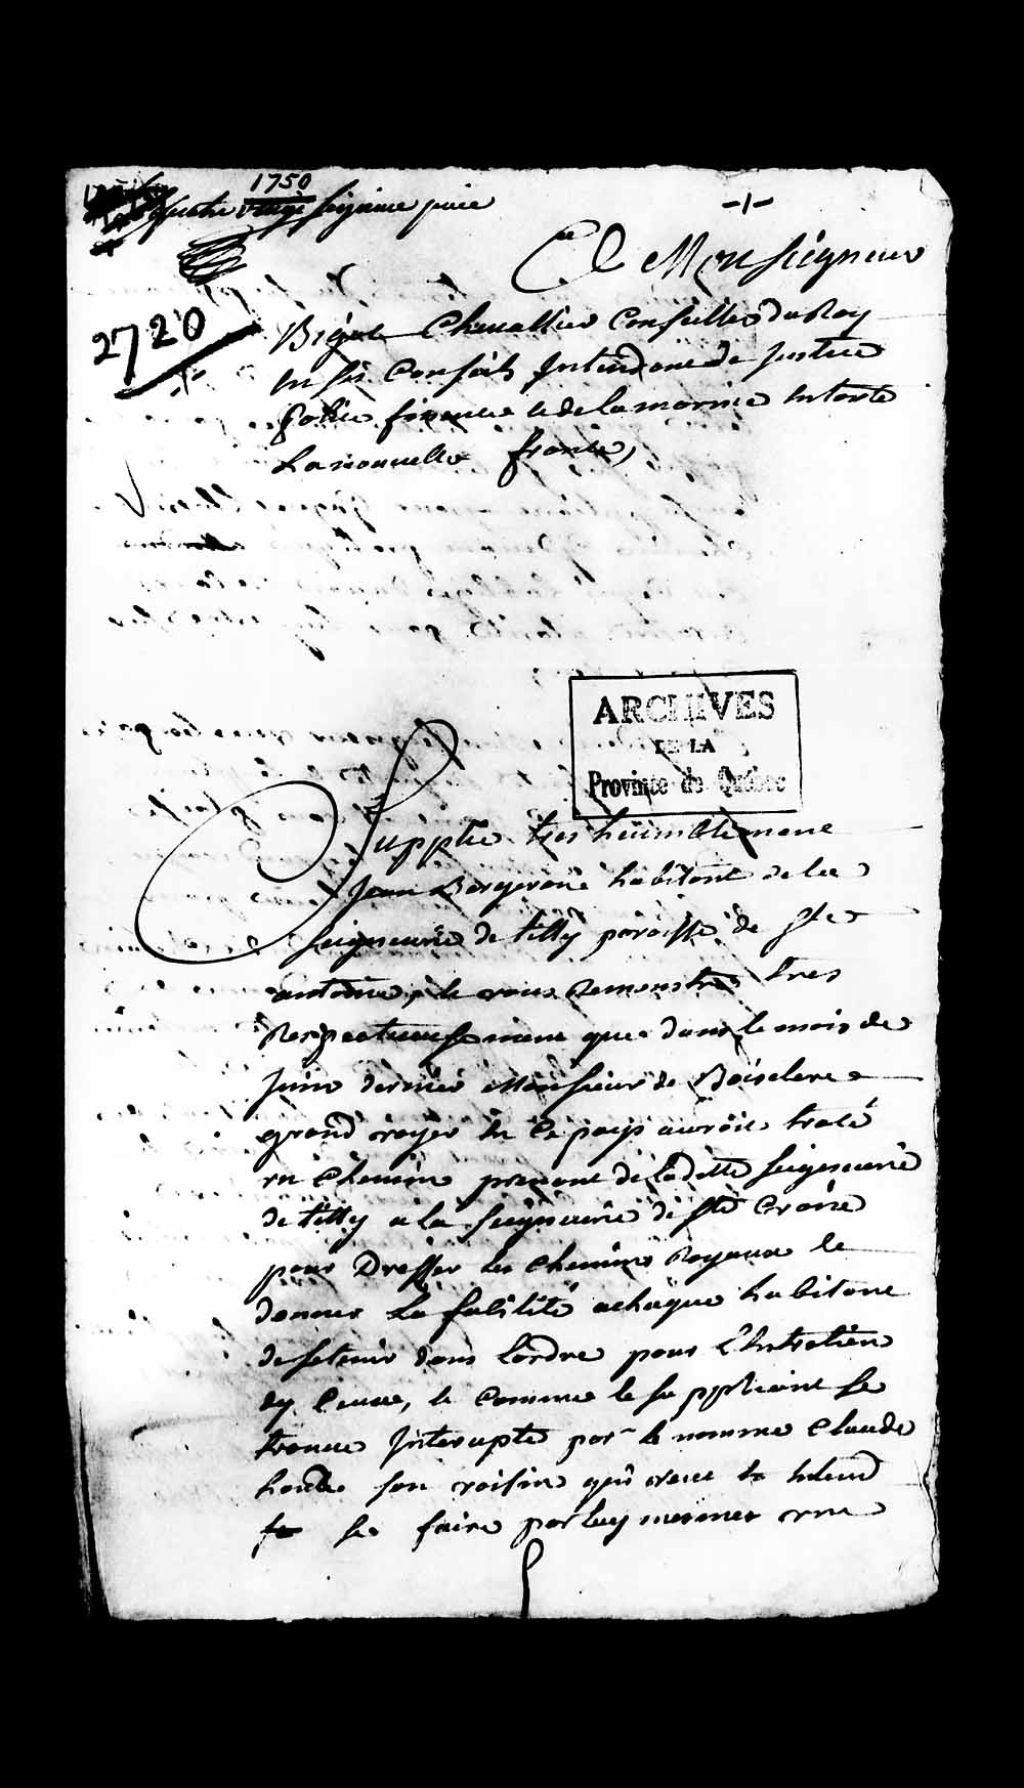 1750
quatre vingt seizieme piece
-1-
2720
A Monseigneur
Bigot Chevallier Conseiller du Roy
en ses Conseils Intendant de Justice
police finance et de la marine en toute
La nouvelle france,
ARCHIVES
DE LA
Province de Québec
Supplie tres humblement
Jean Bergeron habitant de la
seigneurie de tilly paroisse de St
antoine, et vous Remonstre tres
Respectueusement que dans le mois de
Juin dernier Monsieur de Boisclere
grand voyer en ce pays auroit trasé
un chemin prenant de la ditte seigneurie
de tilly a la seigneurie de Ste Croix
pour Dresser les chemins Royaux et
donner La fasilité a chaque habitant
de se tenir dans L'ordre pour L'Entretien
dy Ceux, et comme le suppliant se
trouve Interupté par le nommé Claude
houde son voisin qui veut et entend
se faire par luy mesmes une